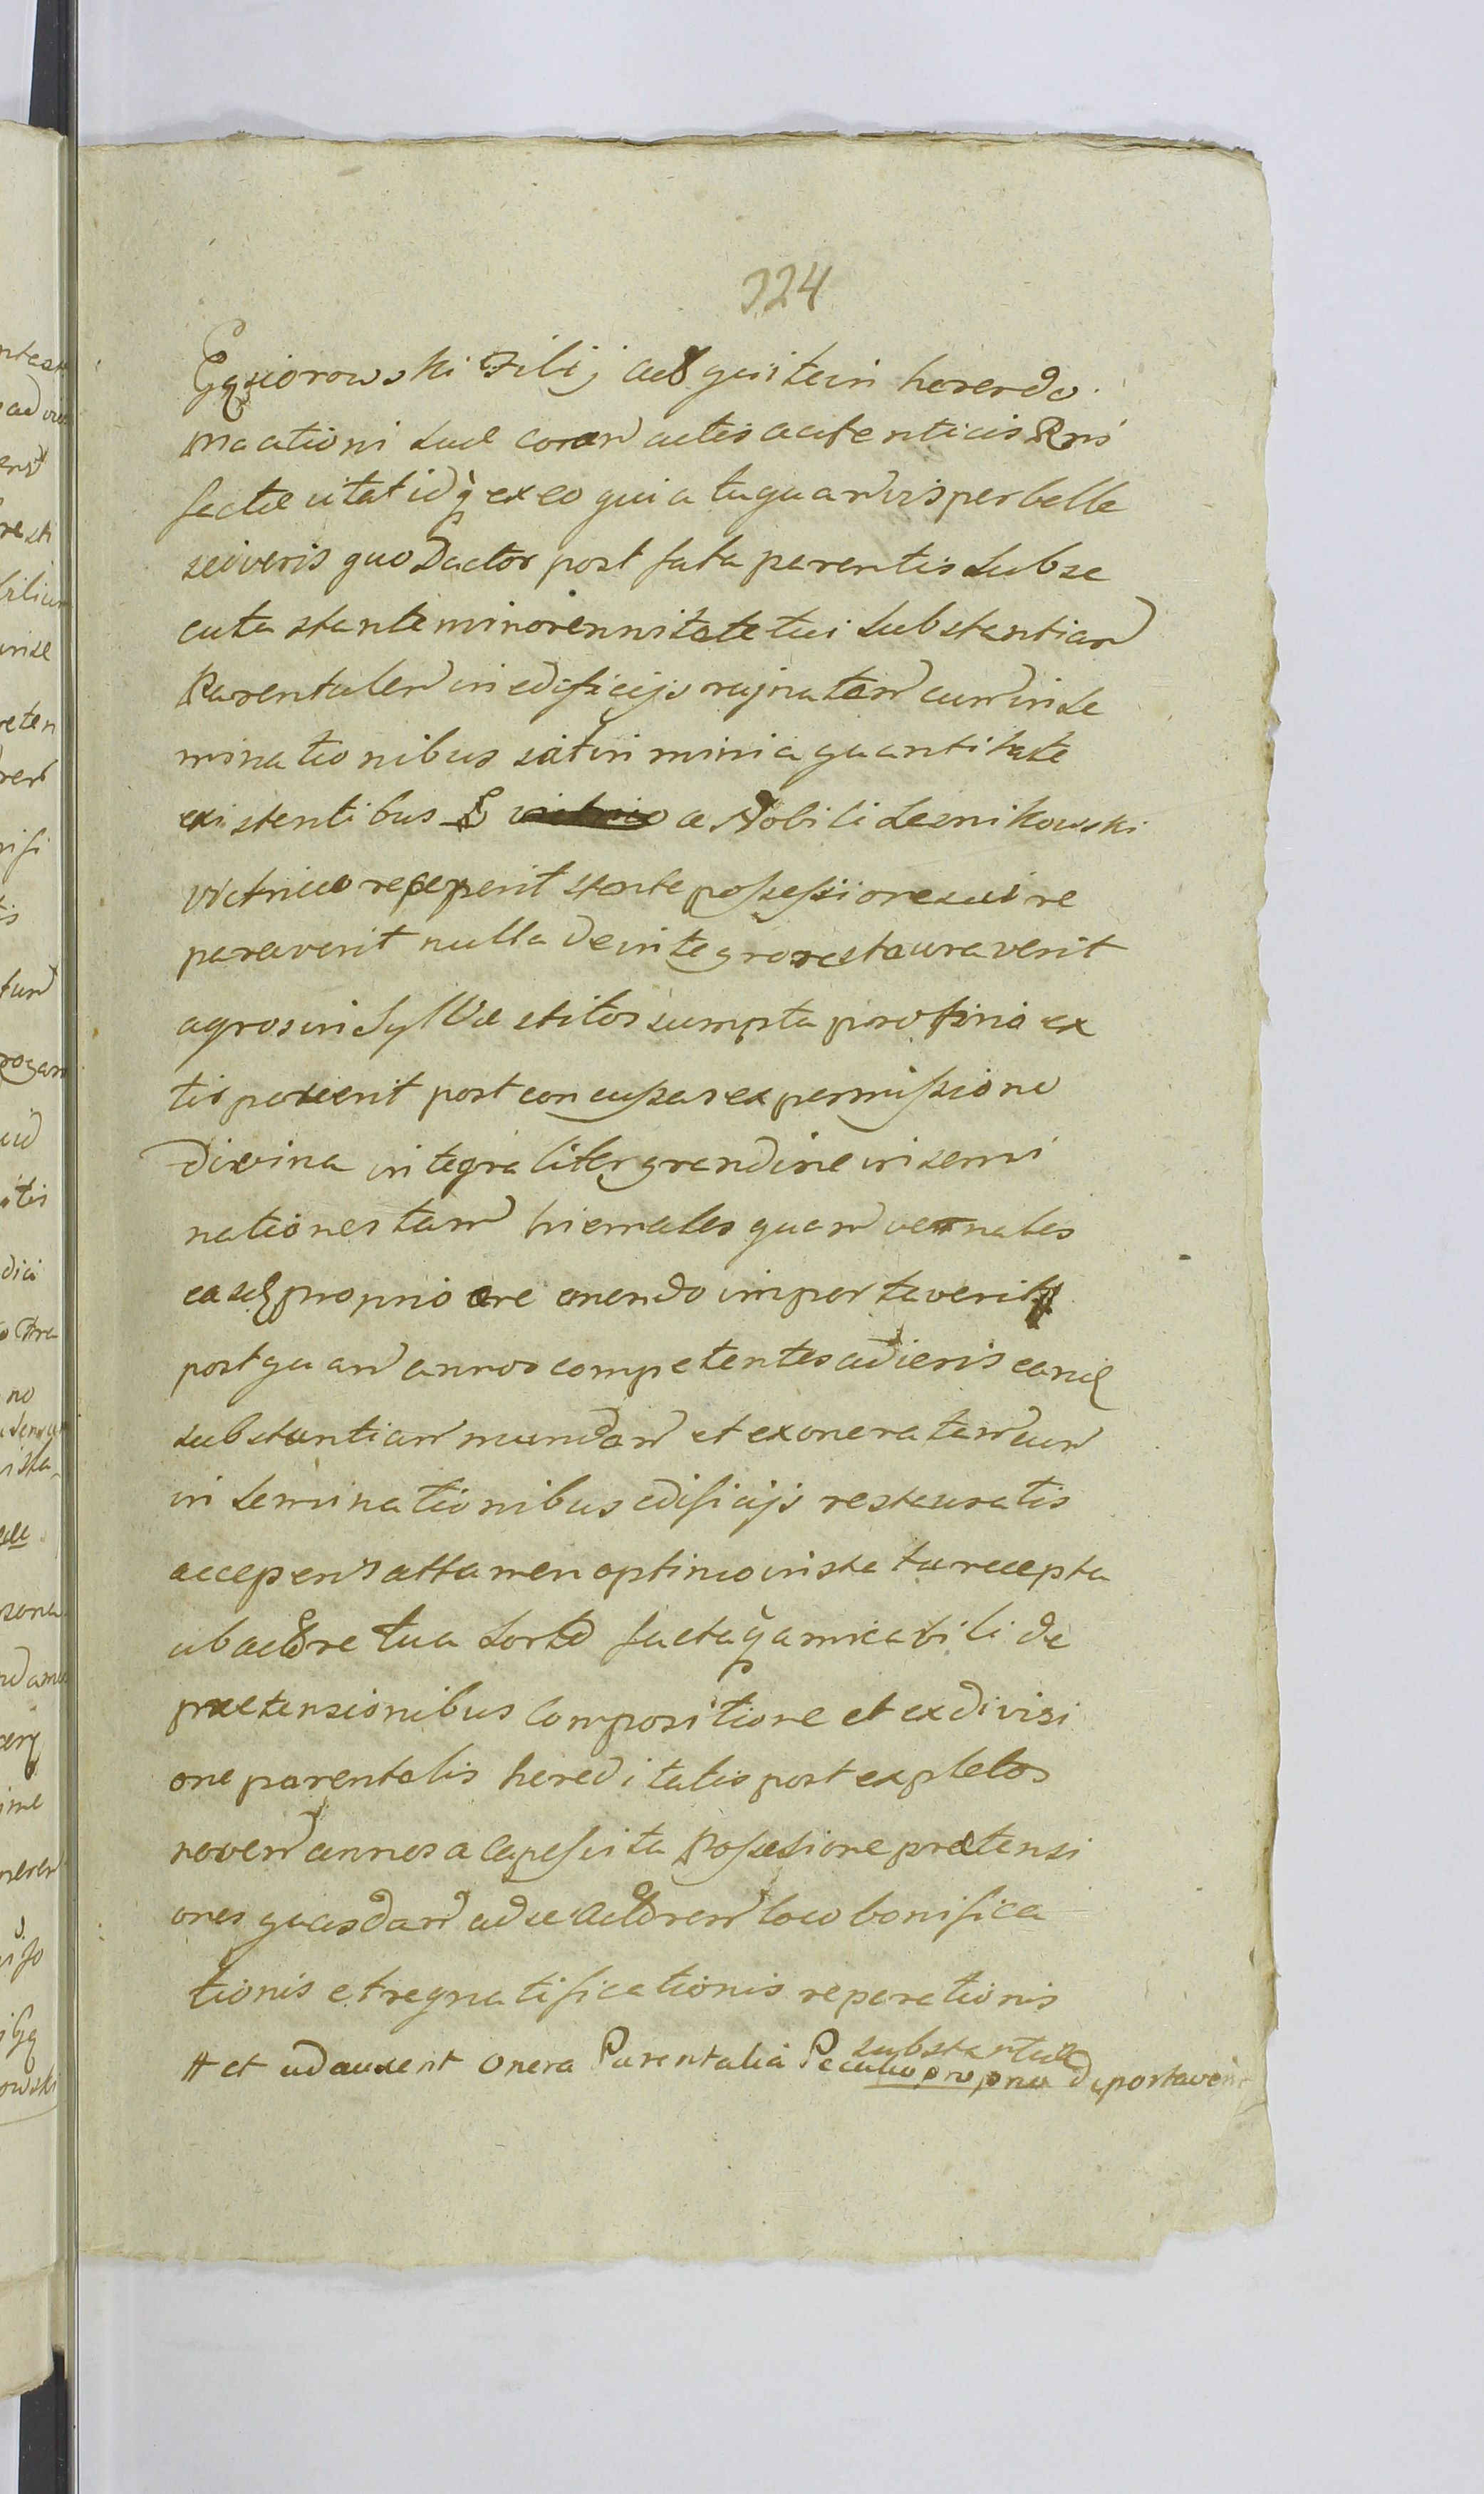 324
Gąsiorowski Filij actor qui tem herendo
ma ationi suae coram actis autenticis Rns
factae citat idq ex eo quia tu quam vis perbelle
sciveris quod actor post fata parentis subse
cuta stante minorennitate tui substantiam
Parentalem in edificijs rujnatam cum inse
minationibus sat in minia quantitate
existentibus a Nobili Lesnikowski
victrico reperit stante possessione sui re
paraverit nulla de integro restauraverit
agros in Sylvae sitos sumptu proprio ex
tirpaverit post concussas ex permissione
divina integraliter grandine insemi
nationes tam hiemales quam vernales
easdq proprio aere emendo importaverit #
postquam annos competentes adieris eandq
substantiam mundam et exoneratam cum
inseminationibus edificijs restauratis
acceperis attamen optimo in statu recepta
ab actore tua sorte factaq amicabili de
praetensionibus compositione et ex divisi
one parentalis hereditatis post expletos
novem annos a capessita possessione praetensi
ones quasdam ad se Actorem loco bonifica
tionis et regnatificationis reparationis
substantiae
# et adauxerit onera Parentalia Peculio proprio deportaverit